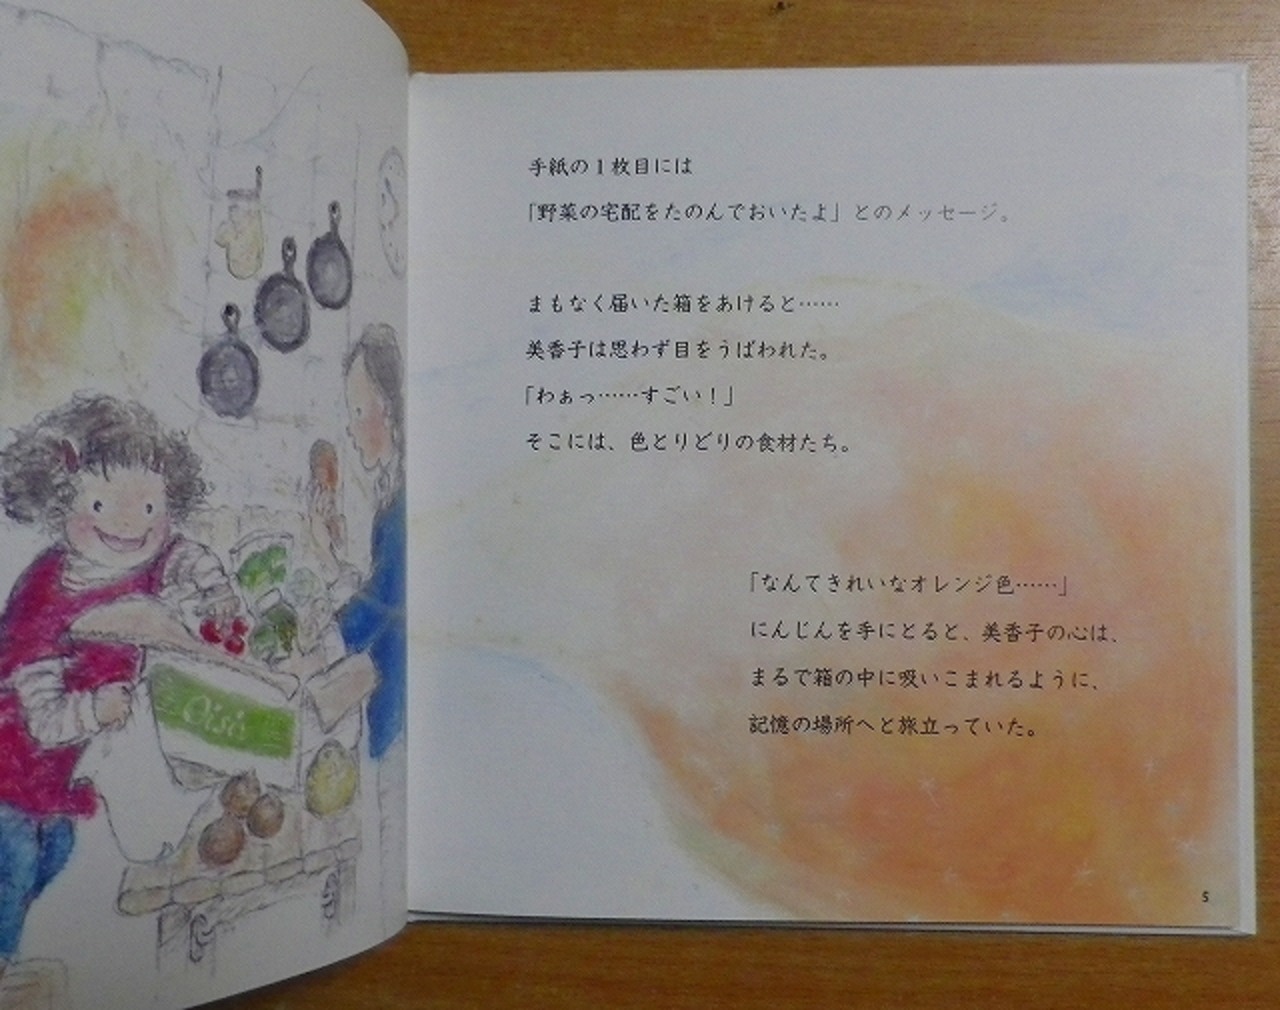 手紙の1枚目には
「野菜の宅配をたのんでおいたよ」とのメッセージ。
まもなく届いた箱をあけると……
美香子は思わず目をうばわれた。
「わぁっ……すごい!」
そこには、色とりどりの食材たち。
「なんてきれいなオレンジ色……」
にんじんを手にとると、美香子の心は、
まるで箱の中に吸いこまれるように、
記憶の場所へと旅立っていた。
5
Oisix